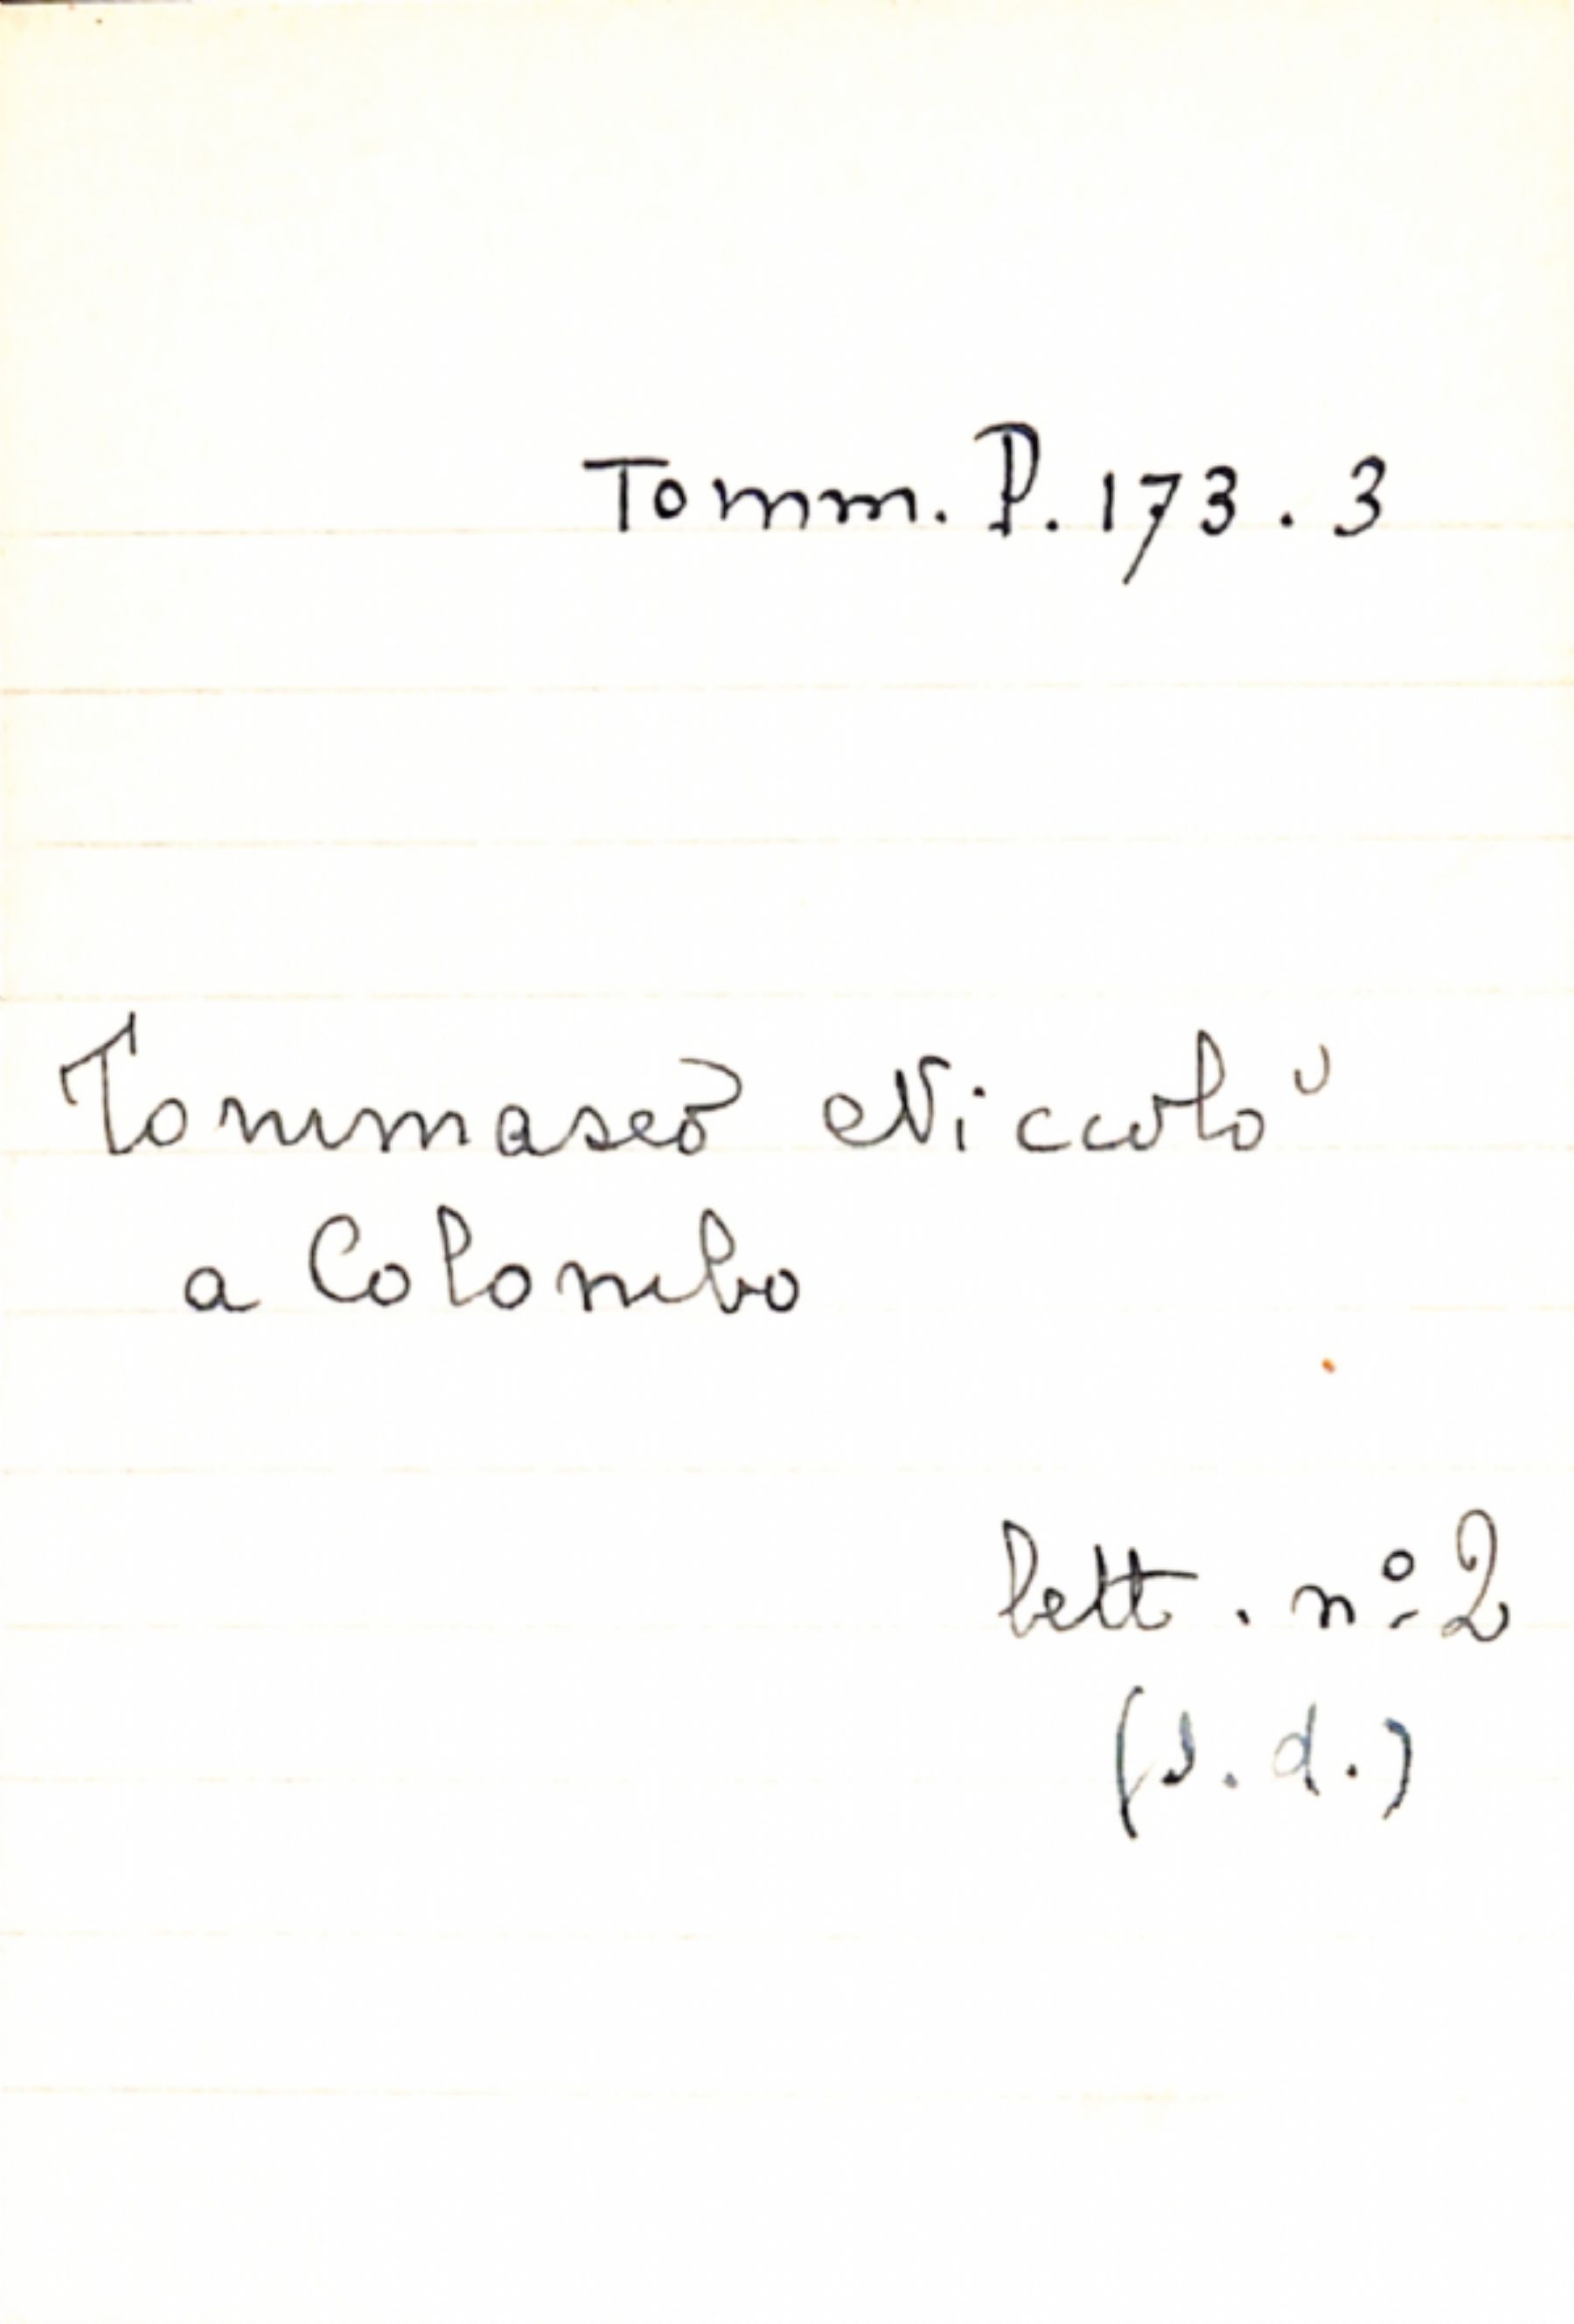 Tomm. P. 173. 3
Tommaseo Niccolò
a Colombo
lett. nº 2
(s.d.)